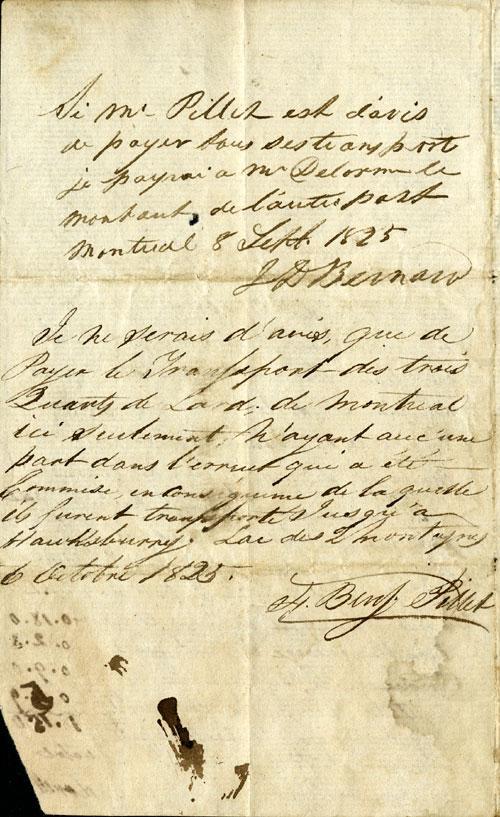 Si Mr Pillet est d'avis
de payer tous ses transports
je payrai a Mr Delorme le
montant de l'autre part
Montreal 8 Sept. 1825
J D Bernard
Je ne serais d'avis, que de
Payer le Transport des trois
Quarts de Lard, de Montreal
ici seulement, n'ayant auc'une
part dans l'erreur qui a été
Commise, en consequence de la quelle
ils furent transporté Jusqu'a
Hawksburry. Lac des 2 montagnes
6 Octobre 1825.
F. Benj. Pillet